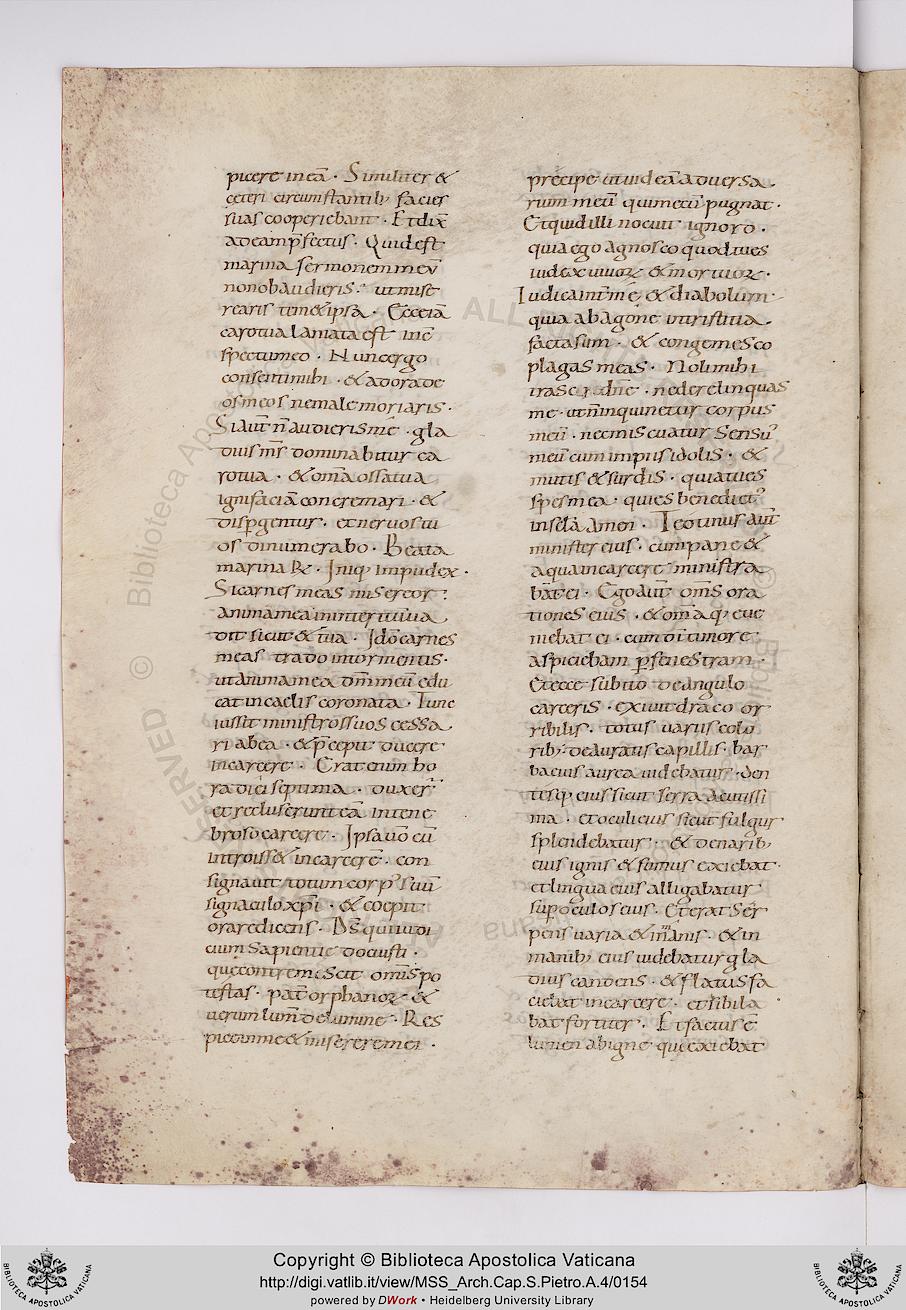 picere in eā · Similiter &
ceteri circumstantib; facies
suas cooperiebant · Et dix̄
ad eam p̄fectus · Quid est
marina sermonem meū
non obaudieris · ut mise
rearis tem&ipsa · Ecce iā
caro tua laniata est in c̄
spectu meo · Nunc ergo
consenti mihi · & adora de
os meos ne male moriaris ·
Si aut̄ n̄ audieris mē · gla
dius m̄s dominabitur ca
ro tua · & om̄a ossa tua
igni faciā concremari · &
disp̄gentur · et nervos tu
os dinumerabo · Beata
marina R& · Iniq; impudex ·
Si carnes meas misereor
anima mea in interitū ua
dit sicut & tua · Ido carnes
meas trado in tormentis ·
ut anima mea om̄ meū edu
cat in caelis coronata · Tunc
iussit ministros suos cessa
ri ab ea · & p̄cepit ducere
in carcere · Erat enim ho
ra diei septima · duxer̄
et recluserunt eā in tene
broso carcere · Ipsa uō cū
introiss& in carcerē · con
signauit totum corp' suū
signaculo xp̄i · & coepit
orare dicens · Ds̄ qui iudi
cium sapientię docuisti ·
quę contremescit omis po
testas · pat̄ orphanoꝝ &
uerum lum̄ de lumine · Res
pice in me & miserere mei ·
precipe ut uideā aduersa
rium meū qui mecū pugnat ·
Et quid illi nocuit ignoro ·
quia ego agnosco quod tu es
iudex uiuoꝝ & mortuoꝝ ·
Iudica int̄ mē & diabolum
quia ab agone in tristitia
facta sum · & congemesco
plagas meas · Noli mihi
irasci dn̄e · ne derelinquas
me · ut n̄ inquinetur corpus
meū · nec misceatur sensū
meū cum impiis idolis · &
mutis & surdis · quia tu es
spes mea · qui es benedict'
in scl̄a amen · Teotinus aut̄
minister eius · cum pane &
aqua in carcere ministra
bat ei · Ego aut̄ om̄s ora
tiones eius · & om̄a q; eue
niebat ei · cum oī timore
aspiciebam p̄ fenestram ·
Et ecce subito de angulo
carceris · exiuit draco or
ribilis · totus uarius colo
rib; deauratus capillis · bar
ba eius aurea uidebatur · den
tesq; eius sicut serra acutissi
ma · et oculi eius sicut fulgur
splendebatur · & de narib;
eius ignis & fumus exiebat ·
et lingua eius alligabatur
sup oculos eius · Et erat ser
pens uaria & inmanis · & in
manib; eius uidebatur gla
dius candens · & flatus fa
ciebat in carcere · et sibila
bat fortiter · Et factus ē
lumen ab igne qui exiebat
Copyright © Biblioteca Apostolica Vaticana
http://digi.vatlib.it/view/MSS_Arch.Cap.S.Pietro.A.4/0154
powered by DWork • Heidelberg University Library